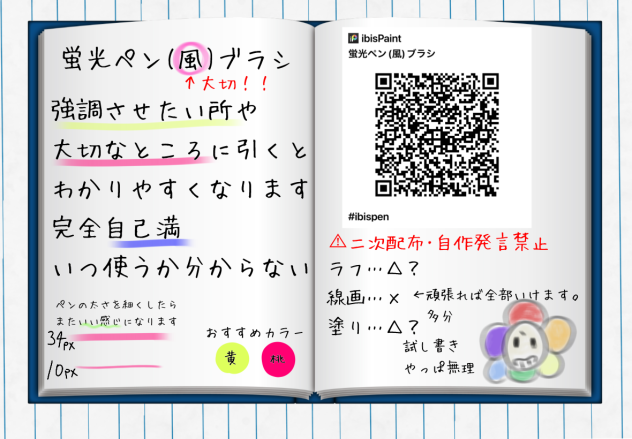 蛍光ペン(風)ブラシ
↑大切！！
強調させたい所や
大切なところに引くと
わかりやすくなります
完全自己満
いつ使うか分からない
ペンの太さを細くしたら
またいい感じになります
34px
10px
おすすめカラー
黄
桃
ibisPaint
蛍光ペン(風)ブラシ
#ibispen
⚠二次配布・自作発言禁止
ラフ…△？
線画…× ←頑張れば全部いけます。
多分
塗り…△？
試し書き
やっぱ無理